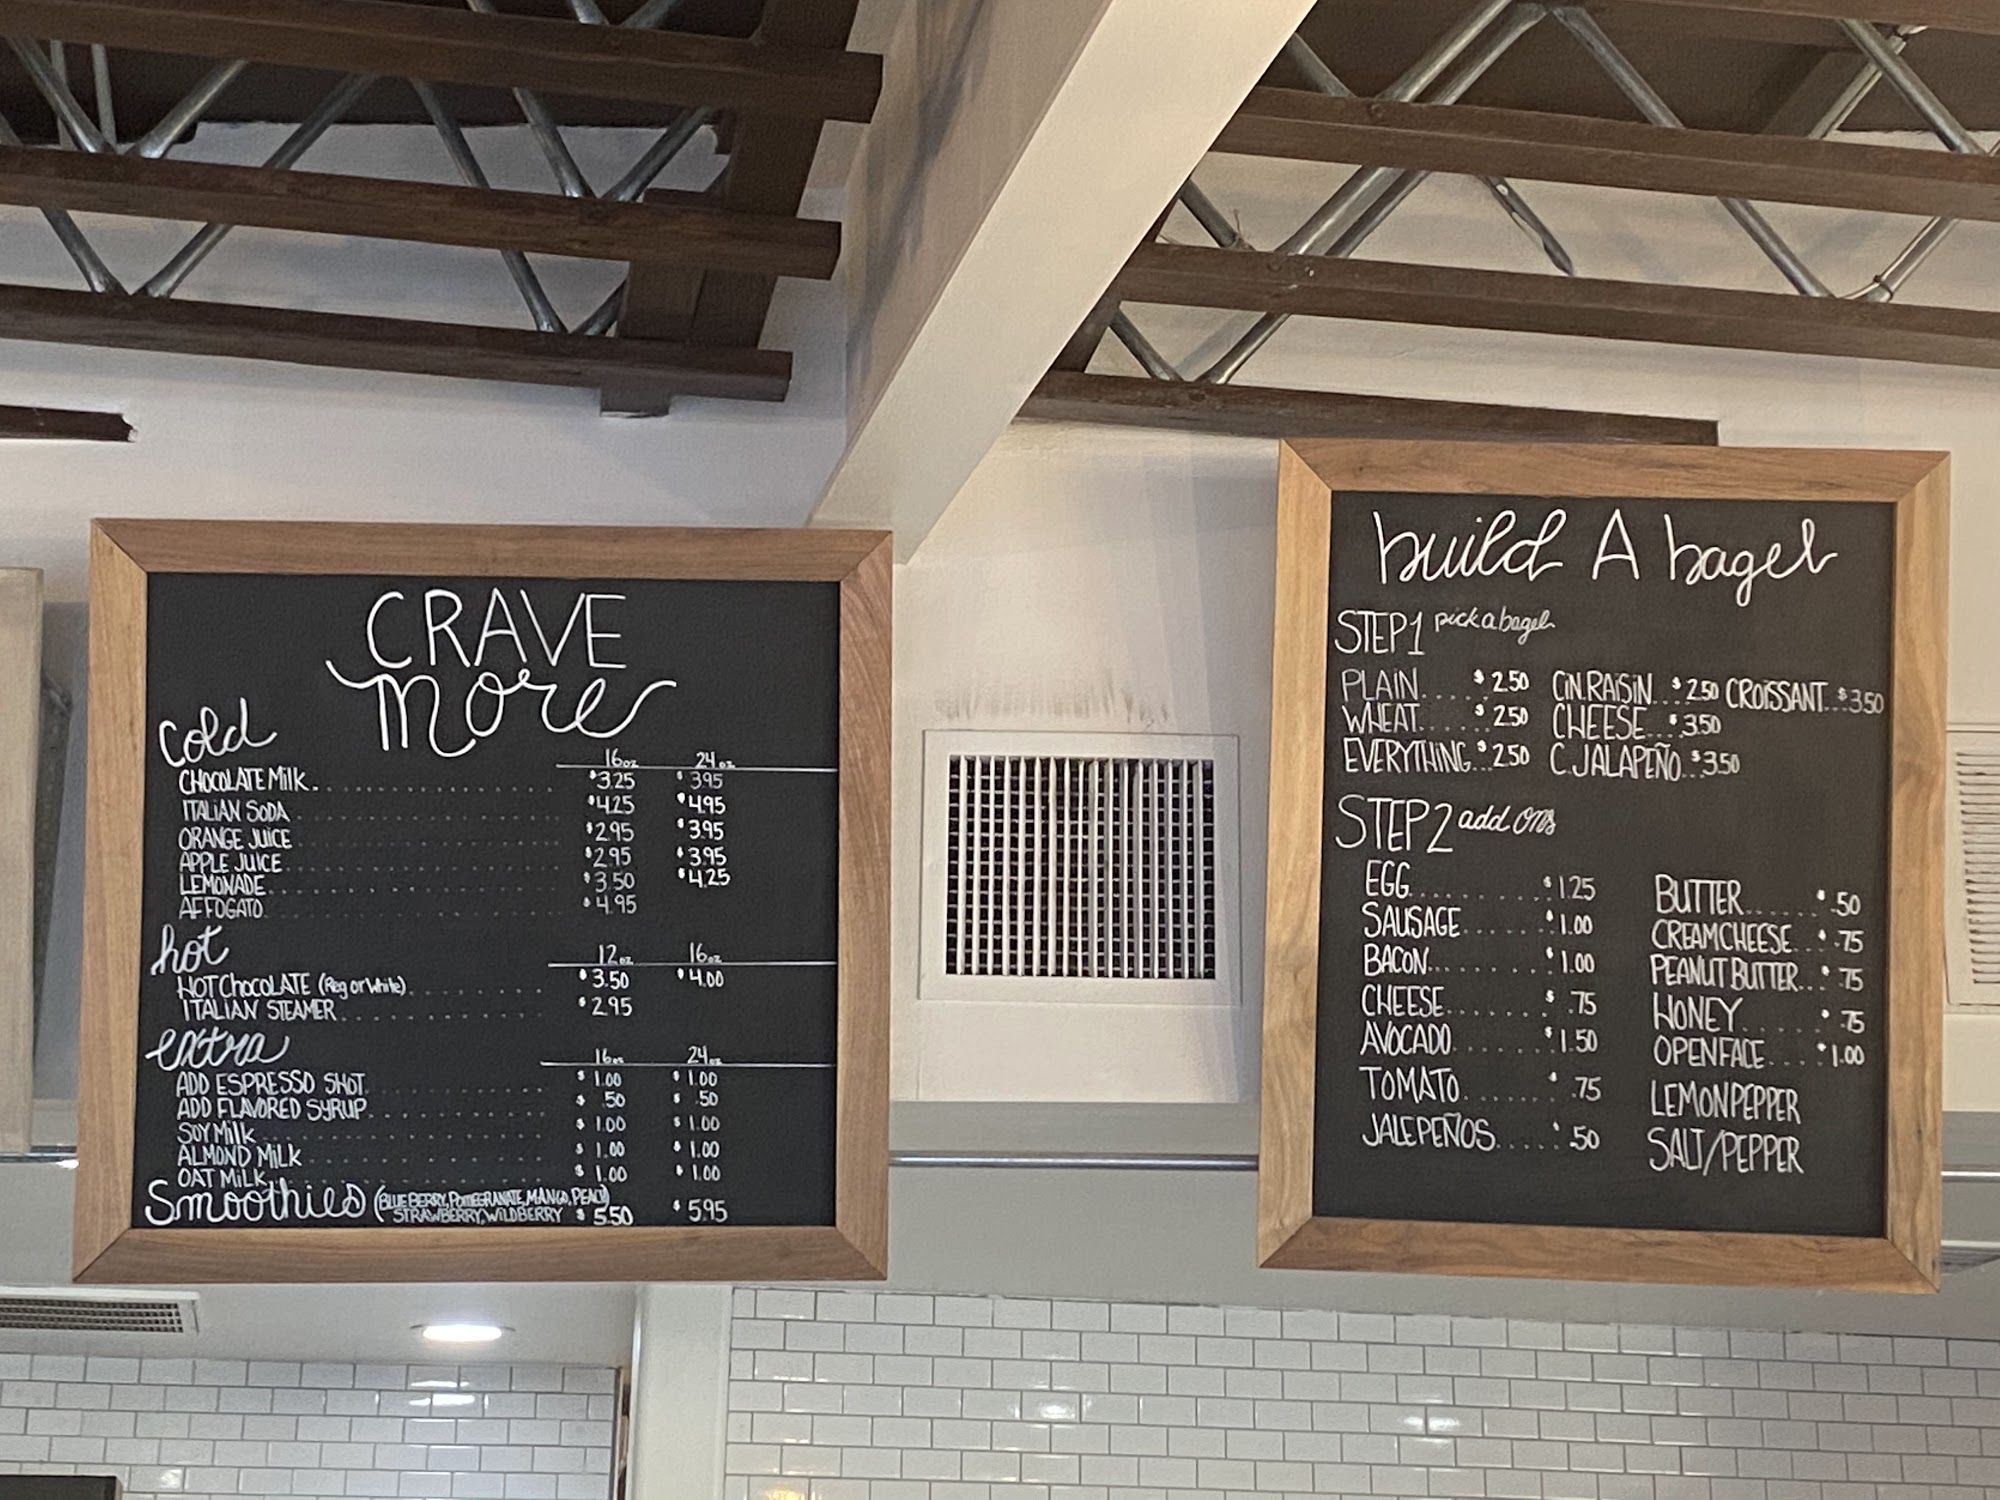 CRAVE
more
cold 16oz 24oz
CHOCOLATE Milk. $3.25 $3.95
ITALIAN SODA $4.25 $4.95
ORANGE JUICE $2.95 $3.95
APPLE JUICE $2.95 $3.95
LEMONADE $3.50 $4.25
AFFOGATO $4.95
hot 12oz 16oz
HOT CHOCOLATE (Reg or White) $3.50 $4.00
ITALIAN STEAMER $2.95
extra 16oz 24oz
ADD ESPRESSO SHOT $1.00 $1.00
ADD FLAVORED SYRUP $.50 $.50
SOY Milk $1.00 $1.00
ALMOND MiLK $1.00 $1.00
OAT MiLK $1.00 $1.00
Smoothies (BLUEBERRY, POMEGRANATE, MANGO, PEACH
STRAWBERRY, WILDBERRY $5.50 $5.95
build A bagel
STEP 1 pick a bagel
PLAIN.... $2.50 CiN.RAISiN...$2.50 CROiSSANT...$3.50
WHEAT..... $2.50 CHEESE....$3.50
EVERYTHING...$2.50 C.JALAPEÑO...$3.50
STEP 2 add ons
EGG......... $1.25 BUTTER...... $.50
SAUSAGE...... $1.00 CREAMCHEESE... $.75
BACON........ $1.00 PEANUT BUTTER... $.75
CHEESE....... $.75 HONEY..... $.75
AVOCADO...... $1.50 OPENFACE.... $1.00
TOMATO...... $.75 LEMONPEPPER
JALEPEÑOS..... $.50 SALT/PEPPER